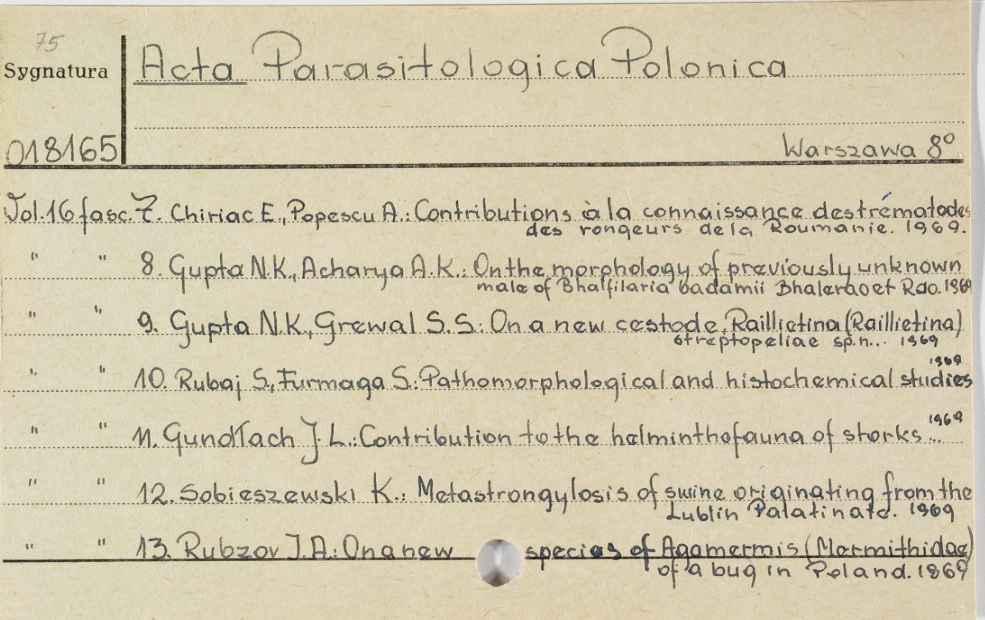 75
Sygnatura
Acta Parasitologica Polonica
018165
Warszawa 8°
Vol. 16 fasc. 7. Chiriac E., Popescu A.: Contributions à la connaissance des trématodes
des rongeurs de la Roumanie. 1969.
" " 8. Gupta N.K., Acharya A.K.: On the morphology of previously unknown
male of Bhalfilaria badamii Bhalerao et Rao. 1969
" " 9. Gupta N.K., Grewal S.S.: On a new cestode, Raillietina (Raillietina)
streptopeliae sp.n... 1969
1969
" " 10. Rubaj S., Furmaga S.: Pathomorphological and histochemical studies
" " 11. Gundłach J. L.: Contribution to the helminthofauna of storks... 1969
" " 12. Sobieszewski K.: Metastrongylosis of swine originating from the
Lublin Palatinate. 1969
" " 13. Rubzov J.A.: On a new species of Agamermis (Mermithidae)
of a bug in Poland. 1969